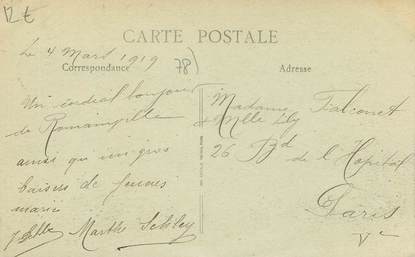 CARTE POSTALE
Le 4 Mars 1919
Correspondance
Adresse
78
Un cordial bonjour
de Romainville
ainsi qu'un gros
baiser de
Marthe Schley
Madame Falconet
& Mlle Lily
26 Bd de l'Hôpital
Paris
Ve